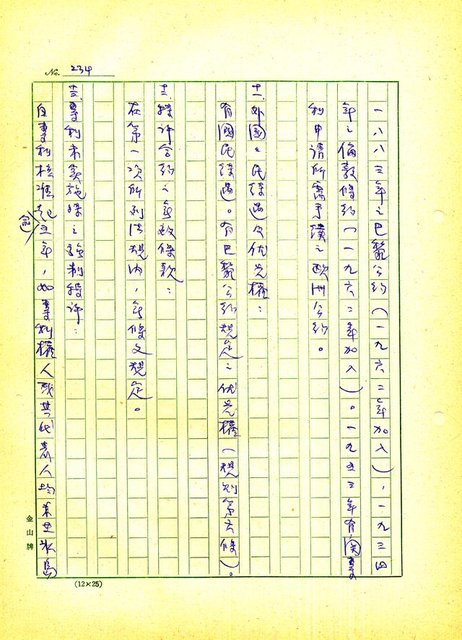 No. 234
一八八三年之巴黎公約（一九六二年加入），一九三四
年之倫敦條約（一九六二年加入）。一九五三年有關專
利申請所需手續之歐洲公約。
十一、外國人民待遇及优先權：
有國民待遇。有巴黎公約規定之优先權（規則第六條）。
十二、特許合約之無效條款：
在第一次所列法規內，無條文規定。
十三、專利未實施時之強制特許：
自專利核准起三年，如專利權人或其代表人均未在冰島
金山牌
(12×25)